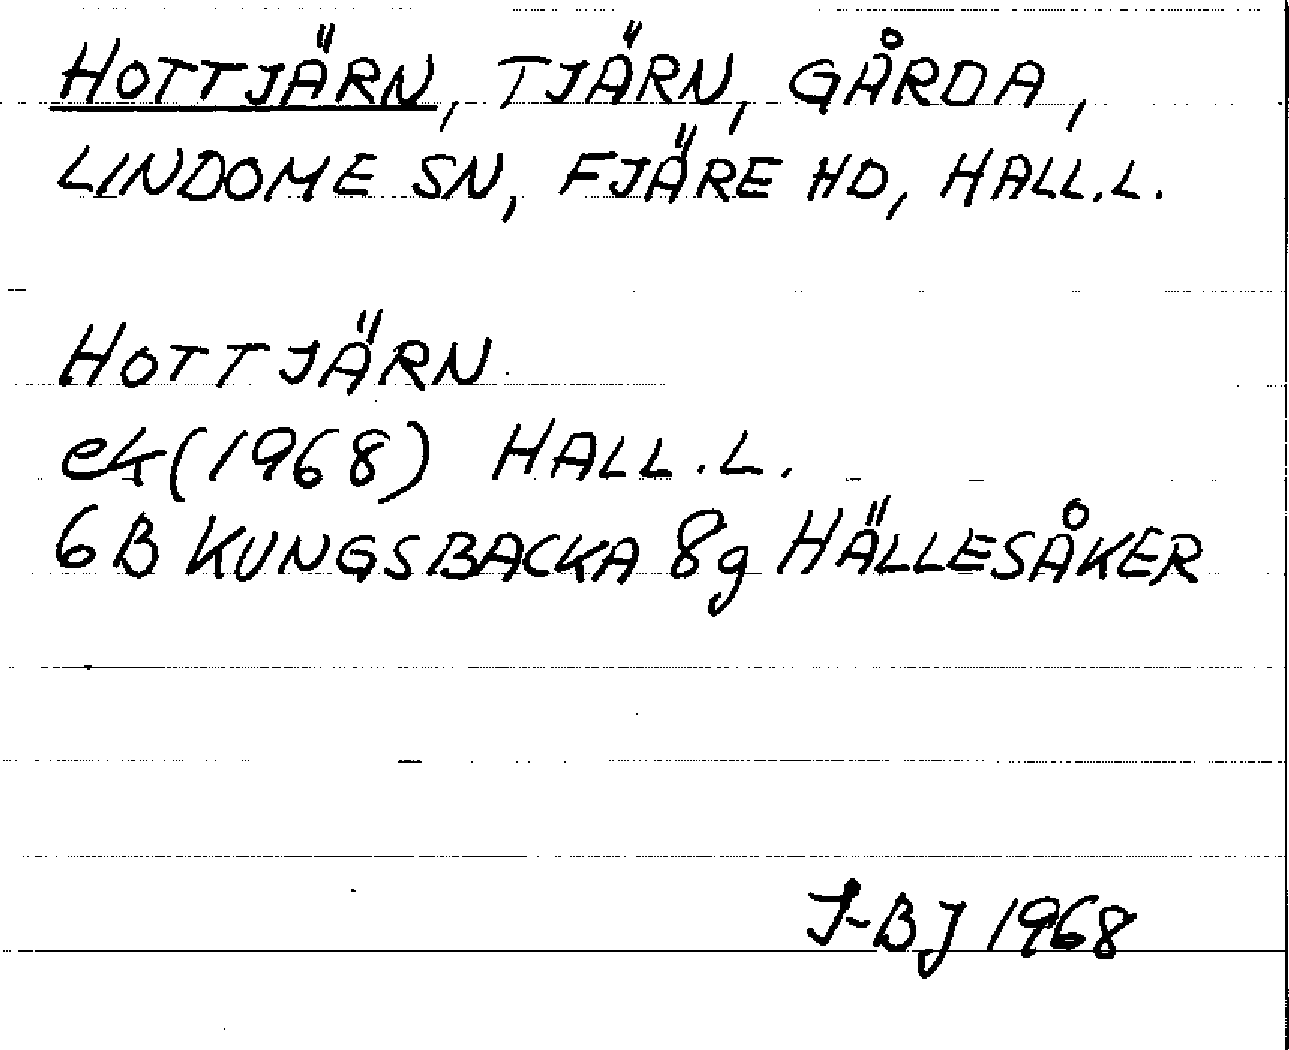 HOTTJÄRN, TJÄRN, GÅRDA,
LINDOME SN, FJÄRE HD, HALL.L.
HOTTJÄRN
ek (1968) HALL.L.
6B KUNGSBACKA 8g HÄLLESÅKER
J-BJ 1968